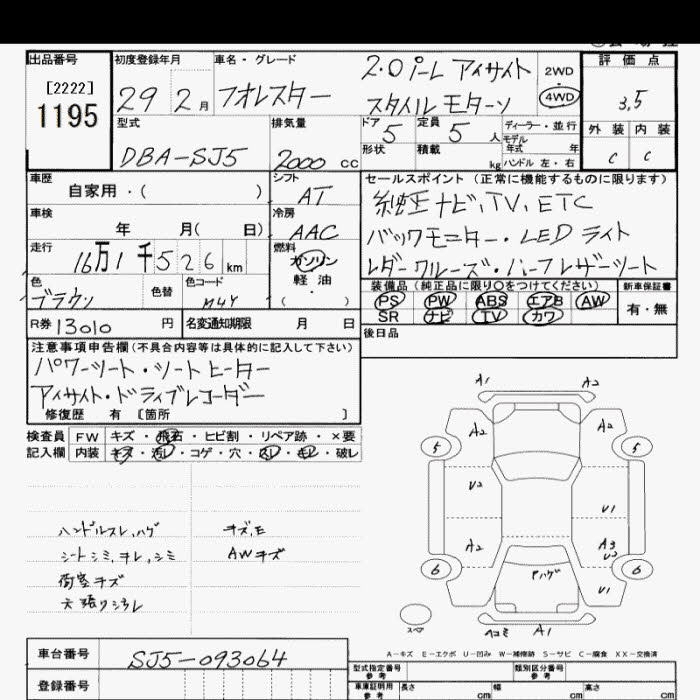 出品番号
[2222]
1195
初度登録年月
29 2月
車名・グレード
フオレスター
2.0i-L アイサイト
スタイルモダーン
2WD
4WD
評価点
3.5
外装 内装
C C
型式
DBA-SJ5
排気量
2000 cc
ドア 5
定員 5 人
形状
積載 kg
ディーラー・並行
モデル年式 年
ハンドル 左・右
車歴
自家用・( )
シフト
AT
車検
年 月( 日)
冷房
AAC
走行
16万1千526km
燃料
ガソリン
軽油
・
色
ブラウン
色替
色コード
R券 13010 円
名変通知期限 月 日
セールスポイント (正常に機能するものに限ります)
純正ナビ,TV,ETC
バックモニター・LEDライト
レダークルーズ・ハーフレザーシート
装備品(純正品に限り○をつけてください)
PS PW ABS エアB AW
SR ナビ TV カワ
新車保証書
有・無
後日品
注意事項申告欄(不具合内容等は具体的に記入して下さい)
パワーシート・シートヒーター
アイサイト・ドライブレコーダー
修復歴 有 [箇所 ]
検査員記入欄
FW キズ・飛石・ヒビ割・リペア跡・×要
内装 キズ・汚レ・コゲ・穴・スレ・キレ・破レ
ハンドルスレ,ハゲ
シートシミ,チレ,シミ
荷室キズ
天張りシミ
AWキズ
A1 A2
A2 A2
5 5
U2 U1
A2 A3
U2
6 6
U1
Pハゲ
スペア
A1
A-キズ E-エクボ U-凹み W-補修跡 S-サビ C-腐食 XX-交換済
車台番号
SJ5-093064
登録番号
型式指定番号
参考
類別区分番号
参考
車庫証明用
参考
長さ cm
幅 cm
高さ cm